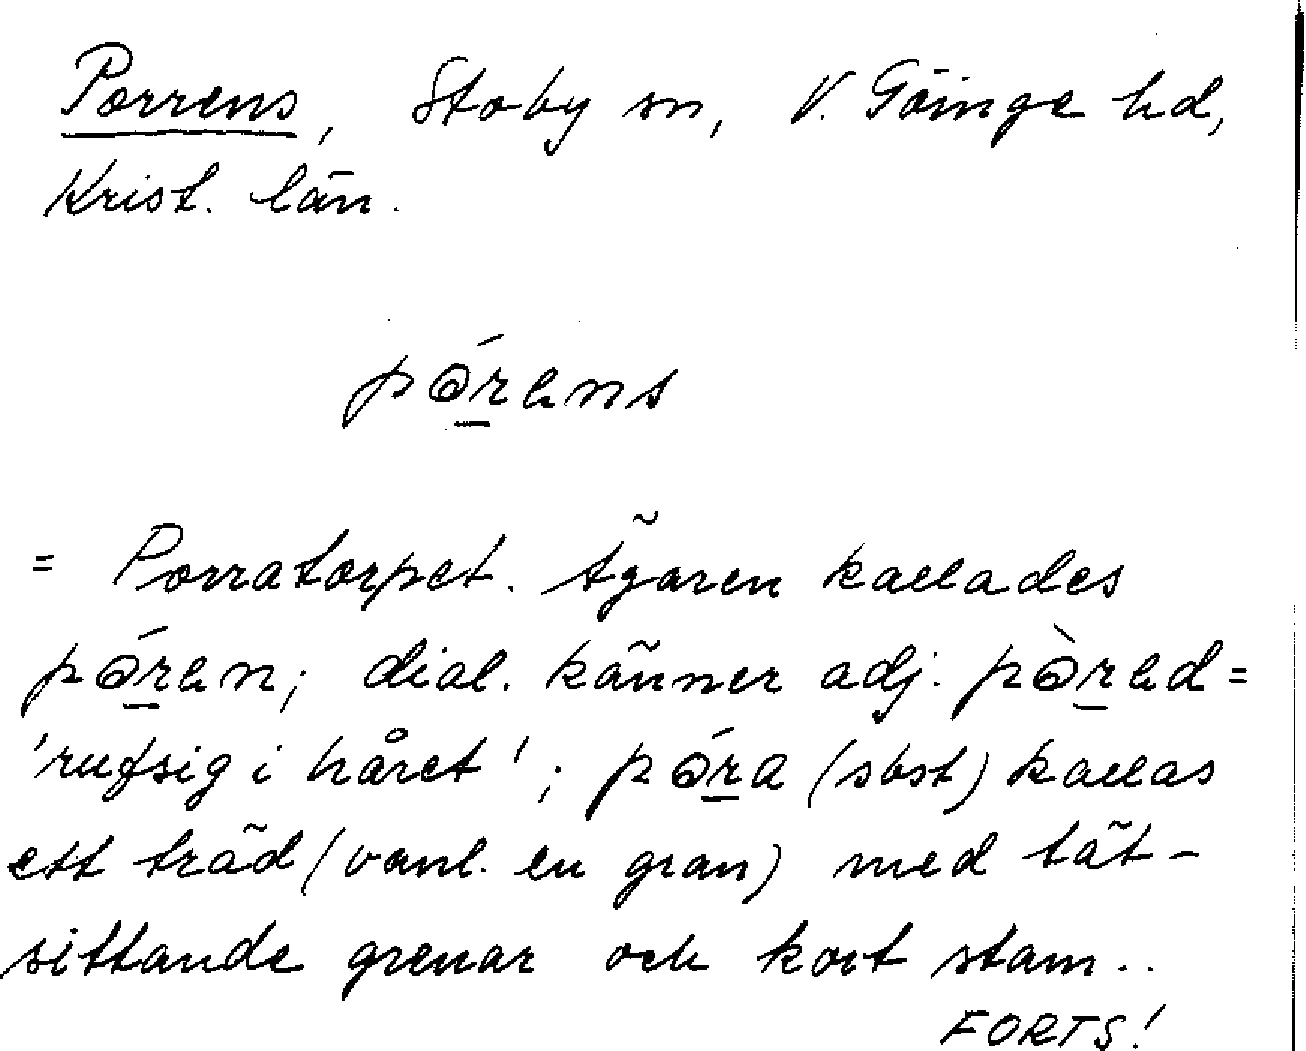 Porrens, Stoby sn, V. Göinge hd,
Krist. län.
pɷ́r̲ens
= Porratorpet. Ägaren kallades
pɷ́r̲en; dial. känner adj. pɷ̀r̲ed =
'rufsig i håret'; pɷ́r̲a (sbst) kallas
ett träd (vanl. en gran) med tät-
sittande grenar och kort stam..
FORTS!